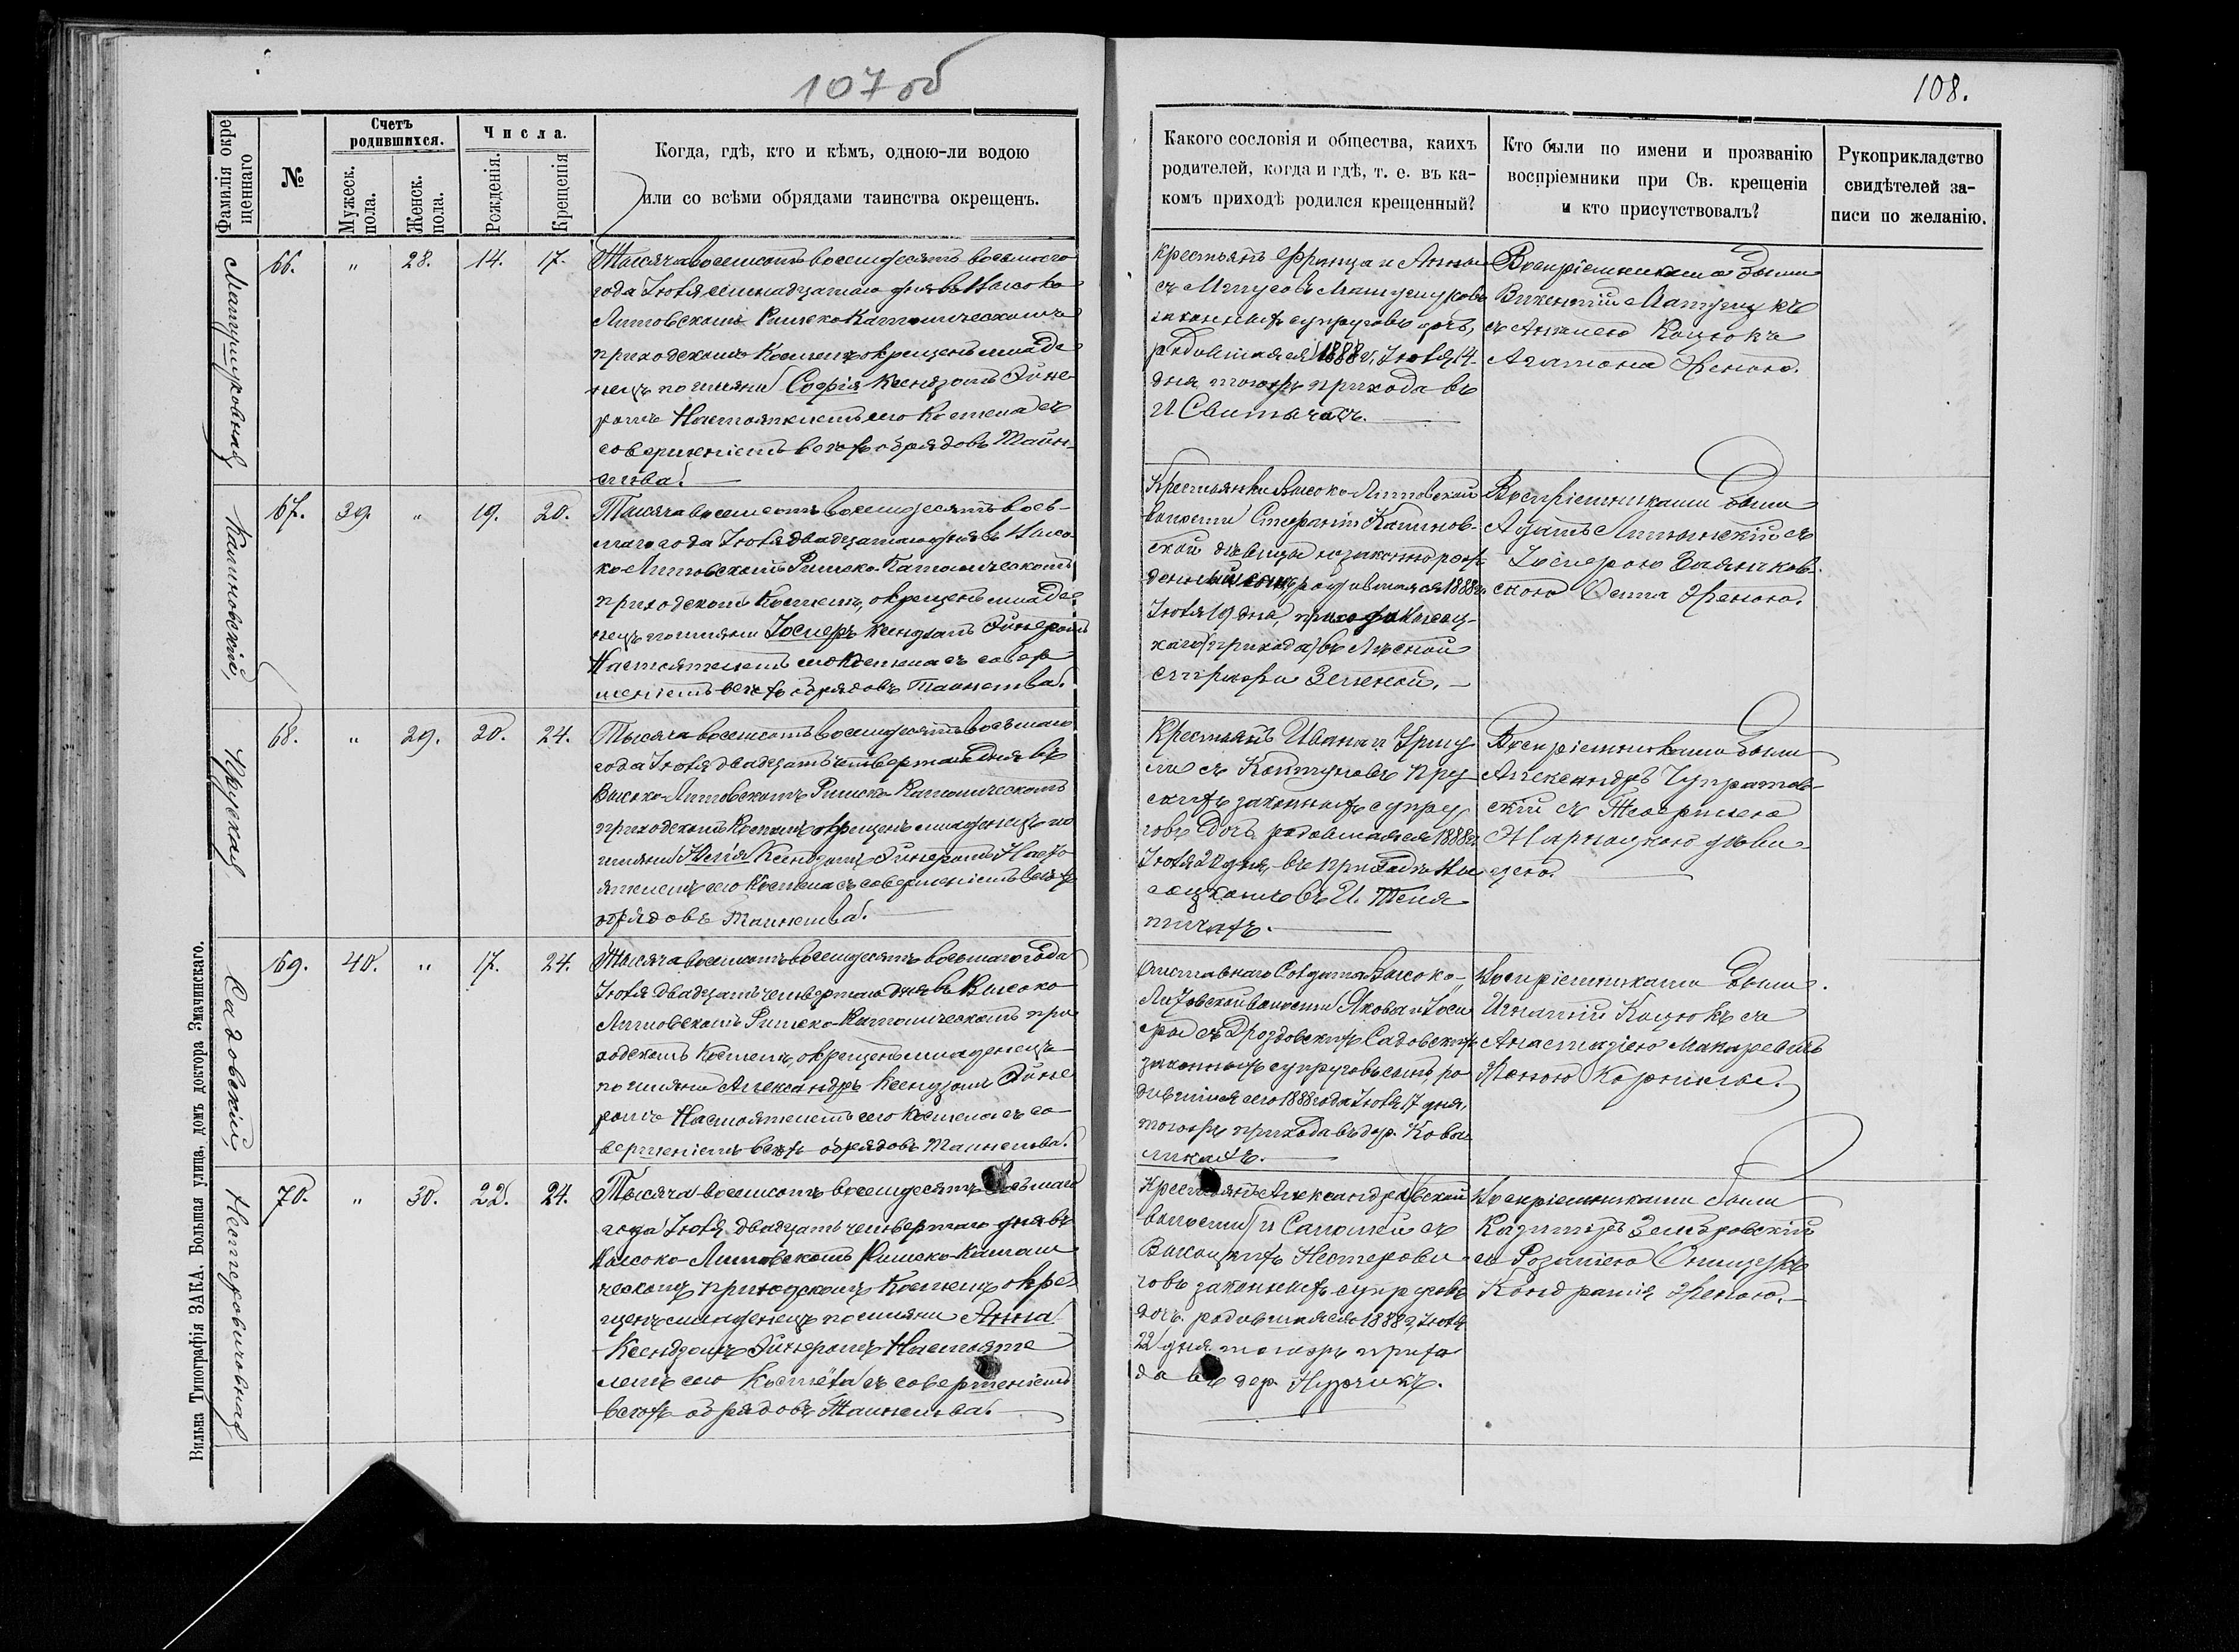 107 об
108.
Фамилія окре
щеннаго
№
Счетъ
родившихся.
Мужеск.
пола.
Женск.
пола.
Числа.
Рожденія.
Крещенія
Когда, гдѣ, кто и кѣмъ, одною-ли водою
или со всѣми обрядами таинства окрещенъ.
Какого сословія и общества, каихъ
родителей, когда и гдѣ, т. е. въ ка-
комъ приходѣ родился крещенный?
Кто были по имени и прозванію
воспріемники при Св. крещеніи
и кто присутствовалъ?
Рукоприкладство
свидѣтелей за-
писи по желанію.
66. " 28. 14. 17.
Тысяча восемьсотъ восемдесятъ восьмого
года Іюля семнадцатаго дня въ Высоко
Литовскомъ Римско Католическомъ
приходскомъ Костелѣ окрещенъ младе
нецъ по имяни Софія Ксендзомъ Эйне
ромъ Настоятелемъ сего Костела съ
совершеніемъ всѣхъ обрядовъ Таин-
ства.
Крестьянъ Франца и Анны
законныхъ супруговъ дочь,
родившаяся 1888 г. Іюля 14
дня того-жъ прихода въ
Воспріемниками были
Викентій
съ
Женою.
Калиновскій,
67. 39. " 19. 20.
Тысяча восемьсотъ восемдесятъ вось-
маго года Іюля двадцатаго дня въ Высо
ко-Литовскомъ Римско-Католическомъ
приходскомъ Костелѣ, окрещенъ младе-
нецъ по имяни Іосифъ Ксендзомъ Эйнеромъ
Настоятелемъ сего Костела съ совер
шеніемъ всѣхъ обрядовъ Таинства.
Крестьянки Высоко-Литовской
волости Стефаніи Калинов-
ской дѣвицы незаконнорож
денный сынъ, родившаяся 1888 г.
Іюля 19 дня, прихода Высоц-
каго (прихода) въ Лѣсной
Воспріемниками были
Адамъ съ
Женою.
Пруская
68. " 29. 20. 24.
Тысяча восемьсотъ восемдесятъ восьмаго
года Іюля двадцать четвертаго дня въ
Высоко-Литовскомъ Римско-Католическомъ
приходскомъ Костелѣ окрещенъ младенецъ по
имяни Ксендзомъ Эйнеромъ Насто-
ятелемъ сего Костела съ совершеніемъ всѣхъ
обрядовъ Таинства.
Крестьянъ Ивана и Уршу
ли съ Пру
скихъ законныхъ супру
говъ дочь родившаяся 1888 г.
Іюля 20 дня, въ приходѣ Вы
соцкомъ въ И.
Воспріемниками были
Александръ
скій съ
дѣви-
цею.
Садовскій,
69. 40. " 17. 24.
Тысяча восемьсотъ восемдесятъ восьмаго года
Іюля двадцать четвертаго дня въ Высоко
Литовскомъ Римско-Католическомъ при
ходскомъ Костелѣ, окрещенъ младенецъ
по имяни Александръ Ксендзомъ Эйне
ромъ Настоятелемъ сего Костела съ со-
вершеніемъ всѣхъ обрядовъ Таинства.
Отставнаго Солдата Высоко-
Литовской волости Якова и Іози
фы съ Дроздовскихъ Садовскихъ
законныхъ супруговъ сынъ, ро
дившійся сего 1888 года Іюля 17 дня,
того-жъ прихода въ дер.
Воспріемниками были
Игнатій Коцюкъ съ
Анастазіею Макаревичъ
Женою
Нестеровичовная
70. " 30. 22. 24.
Тысяча восемьсотъ восемдесятъ восьмаго
года Іюля двадцать четвертаго дня въ
Высоко-Литовскомъ Римско-Католи
ческомъ приходскомъ Костелѣ окре
щенъ младенецъ по имяни Анна
Ксендзомъ Эйнеромъ Настояте
лемъ сего Костёла съ совершеніемъ
всѣхъ обрядовъ Таинства.
Крестьянъ Александра
волости и съ
Высоцкихъ Нестерови
човъ законныхъ супруговъ
дочь родившаяся 1888 г. Іюля
22 дня того-жъ прихо
да въ дер.
Воспріемниками были
Казиміръ
съ Розаліею
Кондрашя Женою.
Вильна Типографія ЗАКА. Большая улица, домъ доктора Змачинскаго.